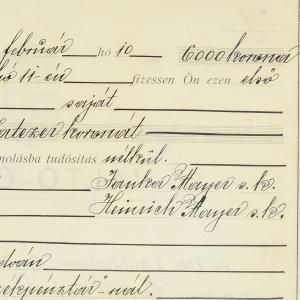 február hó 10 6000 korona
hó 11-én fizessen Ön ezen első
saját
hatezer koronát
molásba tudósítás nélkül.
Janka Mayer s. k.
Heinrich Mayer s. k.
"nál.